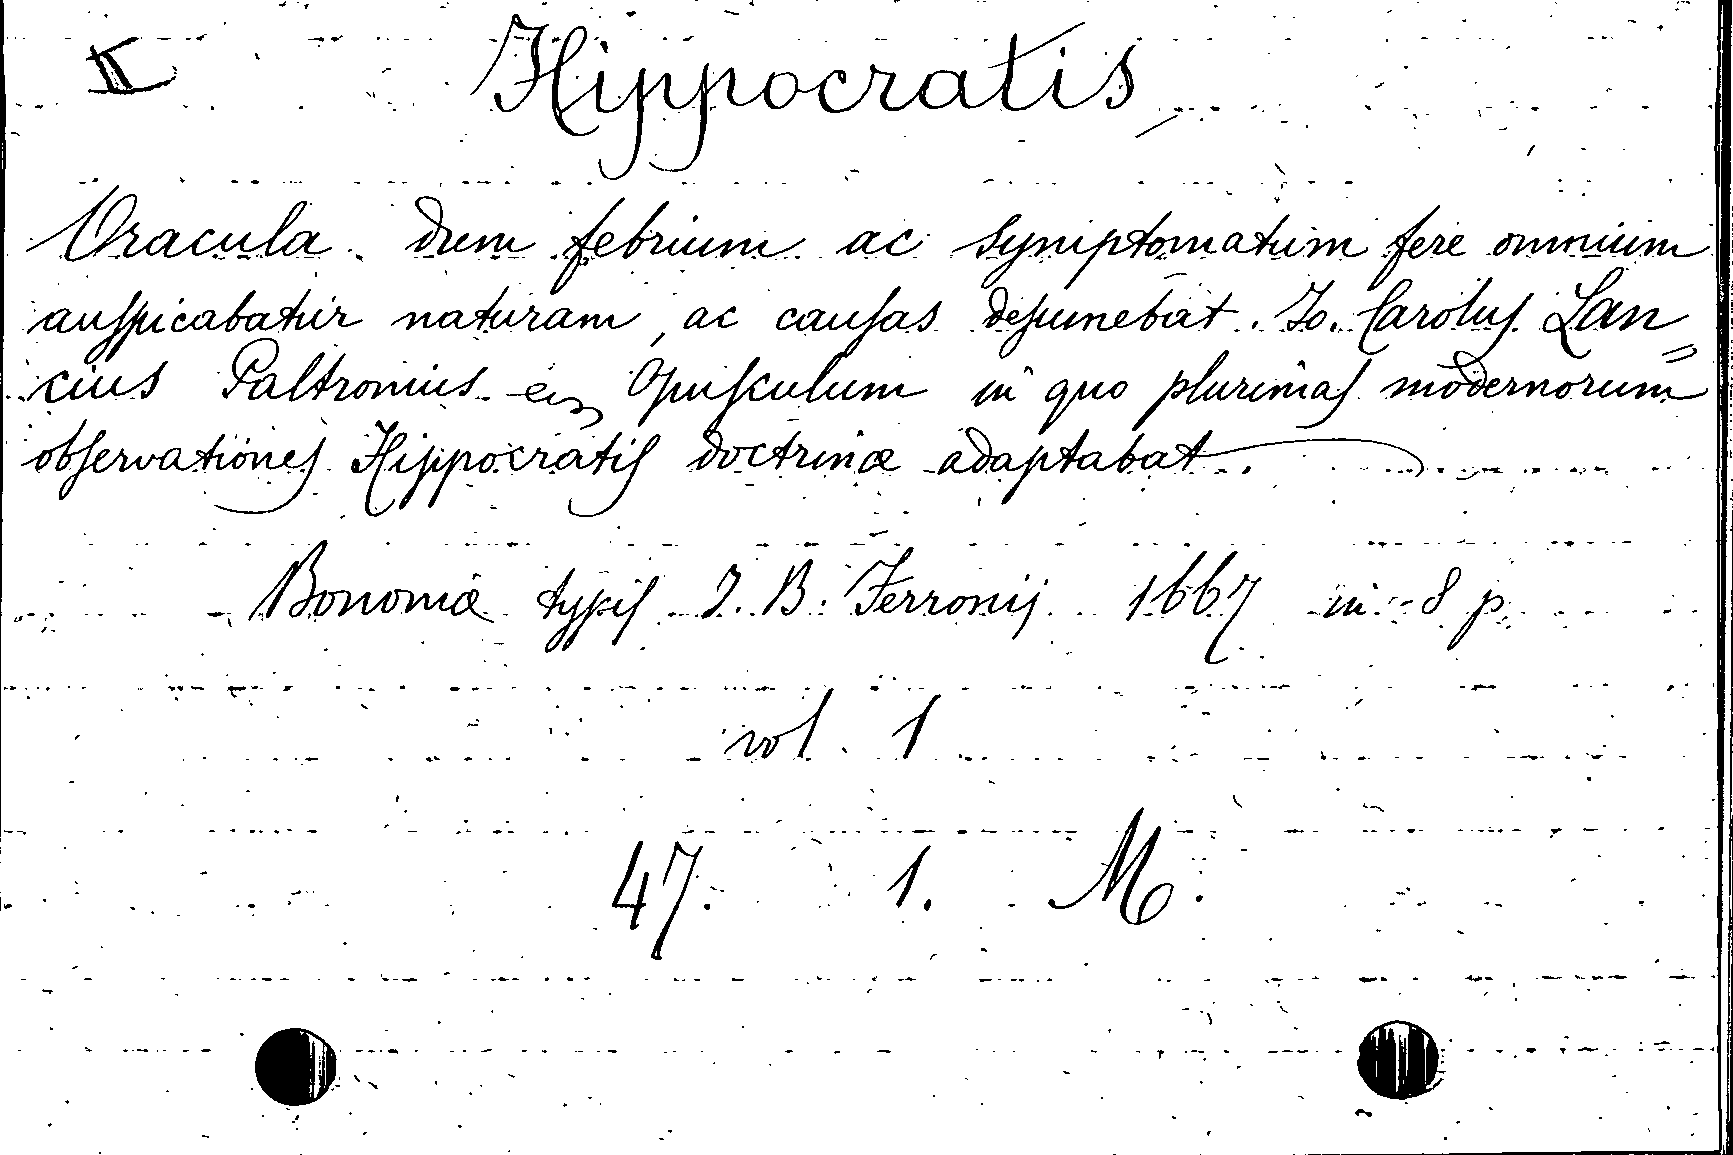 II Hippocratis
Oracula dum febrium ac symptomatum fere omnium
auſpicabatur naturam, ac cauſas deſumebat. Jo. Caroluſ Lan=
cius Paltronius Opuſculum in quo plurimaſ modernorum
obſervationeſ Hippocratiſ doctrinæ adaptabat.
Bononiæ typiſ J. B. Ferronij 1667 in 8 p.
vol. 1
47. 1. M.